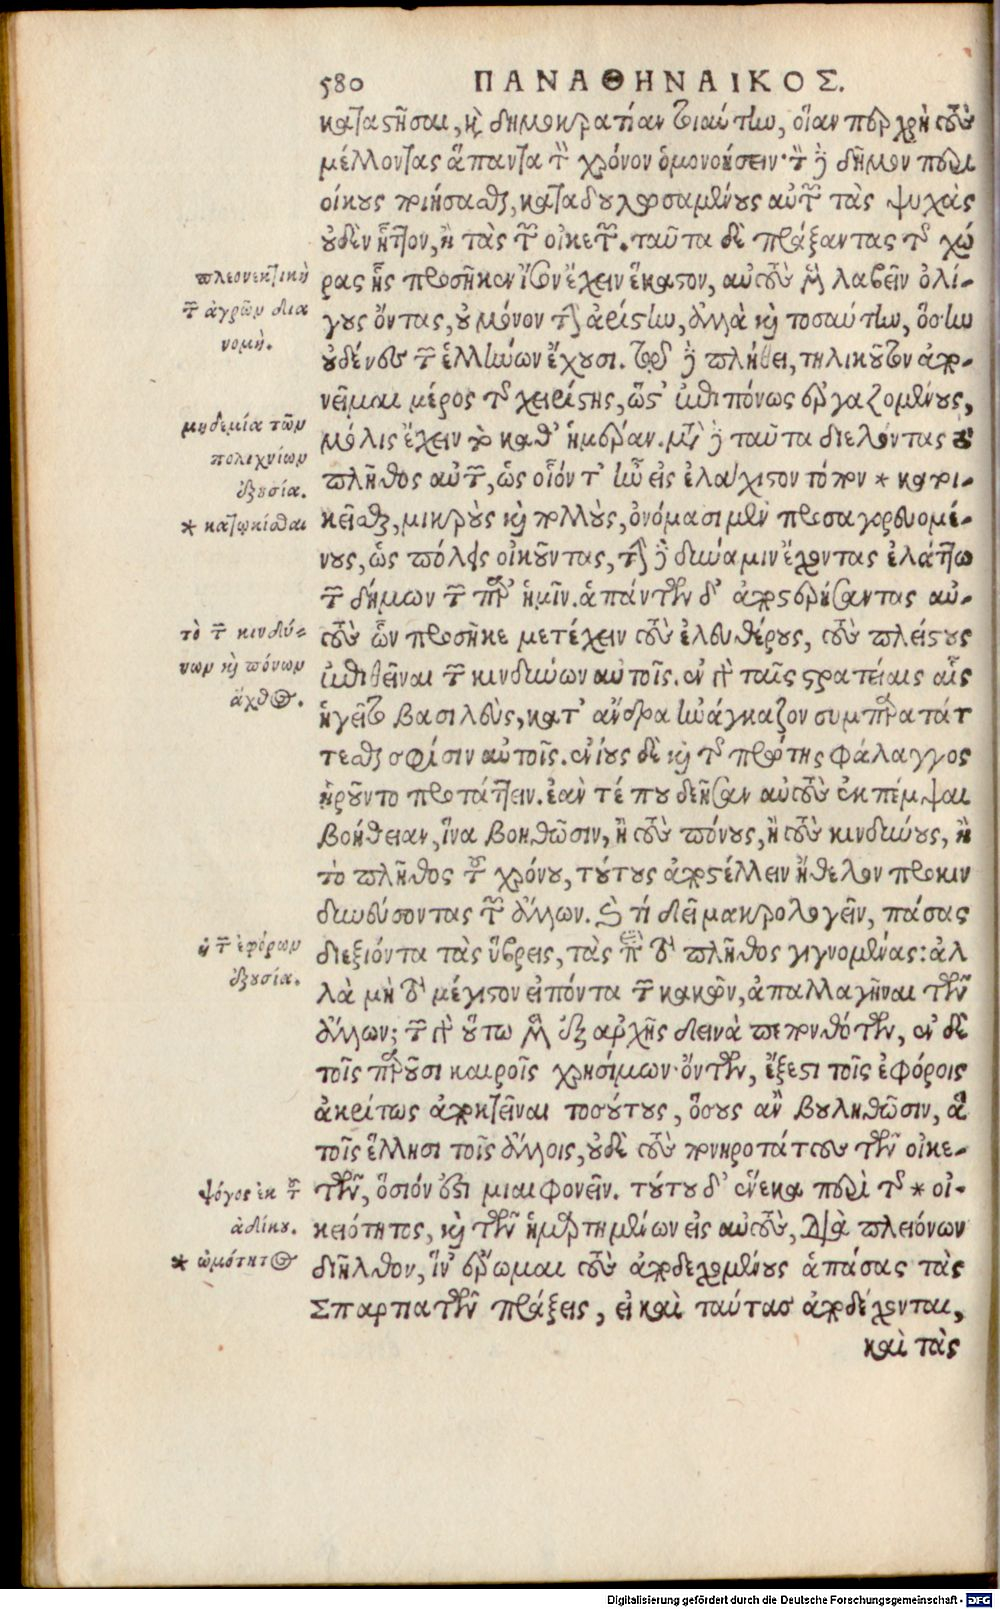 580 ΠΑΝΑΘΗΝΑΙΚΟΣ.
καταστῆσαι, καὶ δημοκρατίαν τοιαύτην, οἵαν περ χρὴ τοὺς
μέλλοντας ἅπαντα τὸν χρόνον ὁμονοήσειν· τὸν δὲ δῆμον περι
οίκους ποιήσασθαι, καταδουλωσαμένους αὐτῶν τὰς ψυχὰς
οὐδὲν ἧττον, ἢ τὰς τῶν οἰκετῶν. ταῦτα δὲ πράξαντας τῆς χώ
ρας ἧς προσῆκεν ἴσον ἔχειν ἕκαστον, αὐτοὺς μὲν λαβεῖν ὀλί-
γους ὄντας, οὐ μόνον τὴν ἀρίστην, ἀλλὰ καὶ τοσαύτην, ὅσην
οὐδένες τῶν ἑλλήνων ἔχουσι. τῷ δὲ πλήθει, τηλικοῦτον ἀπο-
νεῖμαι μέρος τῆς χειρίστης, ὥστ' ἐπιπόνως ἐργαζομένους,
μόλις ἔχειν τὸ καθ' ἡμέραν. μετὰ δὲ ταῦτα διελόντας τὸ
πλῆθος αὐτῶν, ὡς οἷόν τ' ἦν εἰς ἐλαχιστον τόπον * κατοι-
κεῖσθαι, μικροὺς καὶ πολλοὺς, ὀνόμασι μὲν προσαγορευομέ-
νους, ὡς πόλεις οἰκοῦντας, τὴν δὲ δύναμιν ἔχοντας ἐλάττω
τῶν δήμων τῶν παρ' ἡμῖν. ἁπάντων δ' ἀποστερήσαντας αὐ-
τοὺς ὧν προσῆκε μετέχειν τοὺς ἐλευθέρους, τοὺς πλείστους
ἐπιθεῖναι τῶν κινδύνων αὐτοῖς. ἐν γὰρ ταῖς στρατείαις αἷς
ἡγεῖτο βασιλεὺς, κατ' ἄνδρα ἠνάγκαζον συμπαρατάτ
τεσθαι σφίσιν αὐτοῖς. ἐνίους δὲ καὶ τῆς πρώτης φάλαγγος
ἠροῦντο προτάττειν. ἐὰν τέ που δεῆσαν αὐτοὺς ἐκπέμψαι
βοήθειαν, ἵνα βοηθῶσιν, ἢ τοὺς πόνους, ἢ τοὺς κινδύνους, ἢ
τὸ πλῆθος τοῦ χρόνου, τούτους ἀποστέλλειν ἤθελον προκιν
δυνεύσοντας τῶν ἄλλων. καὶ τί δεῖ μακρολογεῖν, πάσας
διεξιόντα τὰς ὕβρεις, τὰς περὶ τὸ πλῆθος γιγνομένας: ἀλ
λὰ μὴ τὸ μέγιστον εἰπόντα τῶν κακῶν, ἀπαλλαγῆναι τῶν
ἄλλων; τῶν γὰρ οὕτω μὲν ἐξ ἀρχῆς δεινὰ πεπονθότων, ἐν δὲ
τοῖς παροῦσι καιροῖς χρησίμων ὄντων, ἔξεστι τοῖς ἐφόροις
ἀκρίτως ἀποκτεῖναι τοσούτους, ὅσους ἂν βουληθῶσιν, ἃ
τοῖς ἕλλησι τοῖς ἄλλοις, οὐδὲ τοὺς πονηροτάτους τῶν οἰκε-
τῶν, ὅσιόν ἐστι μιαιφονεῖν. τούτου δ' ἕνεκα περὶ τῆς * οἰ-
κειότητος, καὶ τῶν ἡμαρτημένων εἰς αὐτοὺς, διὰ πλειόνων
διῆλθον, ἵν' ἔρωμαι τοὺς ἀποδεχομένους ἁπάσας τὰς
Σπαρτιατῶν πράξεις, εἰ καὶ ταύτας ἀποδέχονται,
καὶ τὰς
πλεονεκτικὴ
τῶν ἀγρῶν δια
νομὴ.
μηδεμία τῶν
πολιχνίων
ἐξουσία.
* κατῳκίσθαι
τὸ τῶν κινδύ-
νων καὶ πόνων
ἄχθος.
ἡ τῶν ἐφόρων
ἐξουσία.
ψόγος ἐκ τοῦ
ἀδίκου.
* ὠμότητος
Digitalisierung gefördert durch die Deutsche Forschungsgemeinschaft - DFG